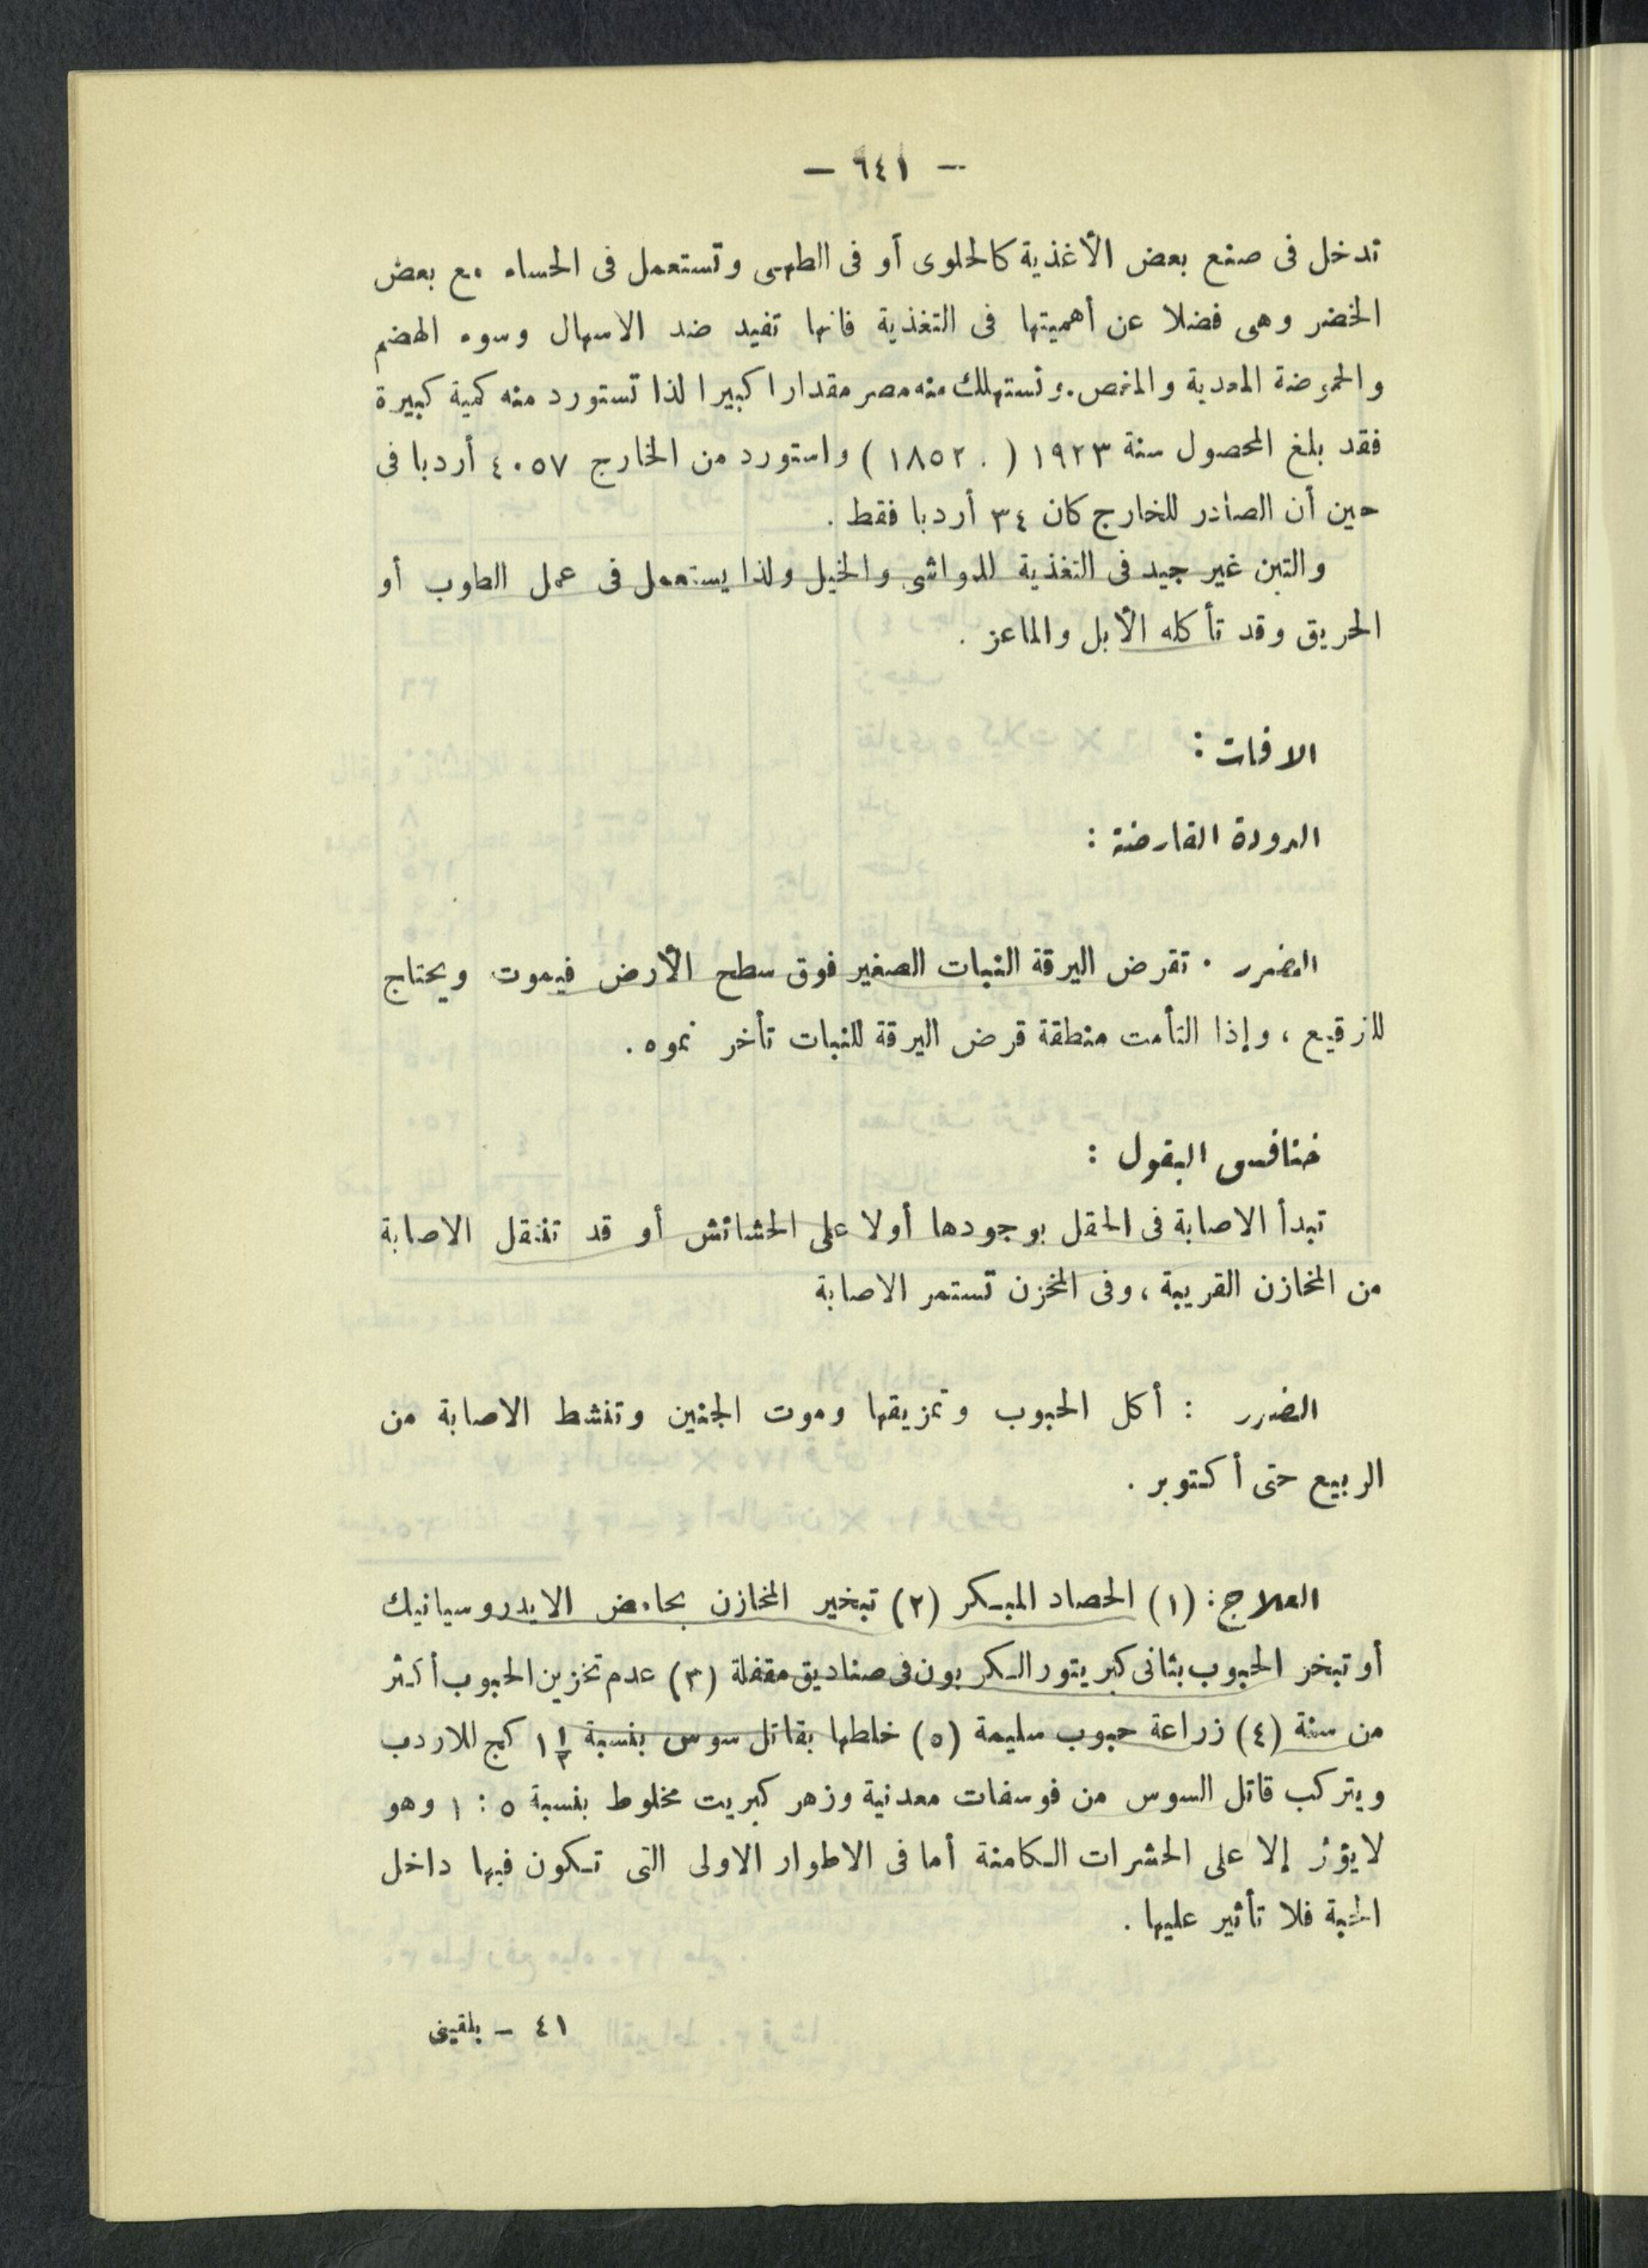 — ٦٤١ —
تدخل فى صنع بعض الأغذية كالحلوى أو فى الطهى وتستعمل فى الحساء مع بعض
الخضر وهى فضلا عن أهميتها فى التغذية فانها تفيد ضد الاسهال وسوء الهضم
والحموضة المعدية والمغص. وتستهلك منه مصر مقدارا كبيرا لذا تستورد منه كمية كبيرة
فقد بلغ المحصول سنة ١٩٢٣ ( ١٨٥٢٠ ) واستورد من الخارج ٤٠٥٧ أردبا فى
حين أن الصادر للخارج كان ٣٤ أردبا فقط .
والتبن غير جيد فى التغذية للمواشى والخيل ولذا يستعمل فى عمل الطوب أو
الحريق وقد تأكله الأبل والماعز .
الافات :
الدودة القارضة :
الضرر . تقرض اليرقة النبات الصغير فوق سطح الأرض فيموت ويحتاج
للترقيع ، وإذا التأمت منطقة قرض اليرقة للنبات تأخر نموه .
خنافس البقول :
تبدأ الاصابة فى الحقل بوجودها أولا على الحشائش أو قد تنتقل الاصابة
من المخازن القريبة ، وفى المخزن تستمر الاصابة
الضرر : أكل الحبوب وتمزيقها وموت الجنين وتنشط الاصابة من
الربيع حتى أكتوبر .
العلاج : (١) الحصاد المبكر (٢) تبخير المخازن بحامض الايدروسيانيك
أو تبخر الحبوب بثانى كبريتور الكربون فى صناديق مقفلة (٣) عدم تخزين الحبوب أكثر
من سنة (٤) زراعة حبوب سليمة (٥) خلطها بقاتل سوس بنسبة ١ ١/٢ كج للاردب
ويتركب قاتل السوس من فوسفات معدنية وزهر كبريت مخلوط بنسبة ٥ : ١ وهو
لا يؤثر إلا على الحشرات الكامنة أما فى الاطوار الاولى التى تكون فيها داخل
الحبة فلا تأثير عليها .
٤١ — بلقينى